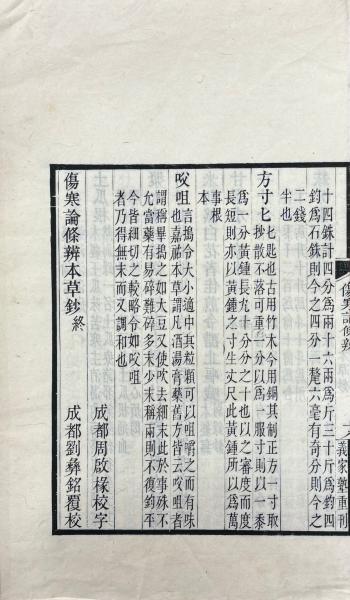 十四銖計四分爲兩十六兩爲斤三十斤爲鈞四
鈞爲石銖則今之四分一釐六毫有奇分則今之
二錢
半也
方寸匕
匕匙也古用竹木今用銅其制正方一寸取
抄散不落可重一分以爲一服寸則以一黍
爲一分黃鍾長九十分分之十也以之審度而度
長短則亦以黃鍾之寸生丈尺此黃鍾所以爲萬
事根
本
㕮咀
言搗合大小適中其粒顆可以咀嚼之而有味
也嘉祐本草謂凡酒湯膏藥舊方皆云㕮咀者
謂稱畢搗之如大豆又使吹去細末此於事殊不
允當藥有易碎難碎多末少末稱兩則不復鈞平
今皆細切之較略令如㕮咀
者乃得無末而又調和也
成都周啟椽校字
傷寒論條辨本草鈔終
成都劉彝銘覆校
傷寒論條辨
義家塾重刊